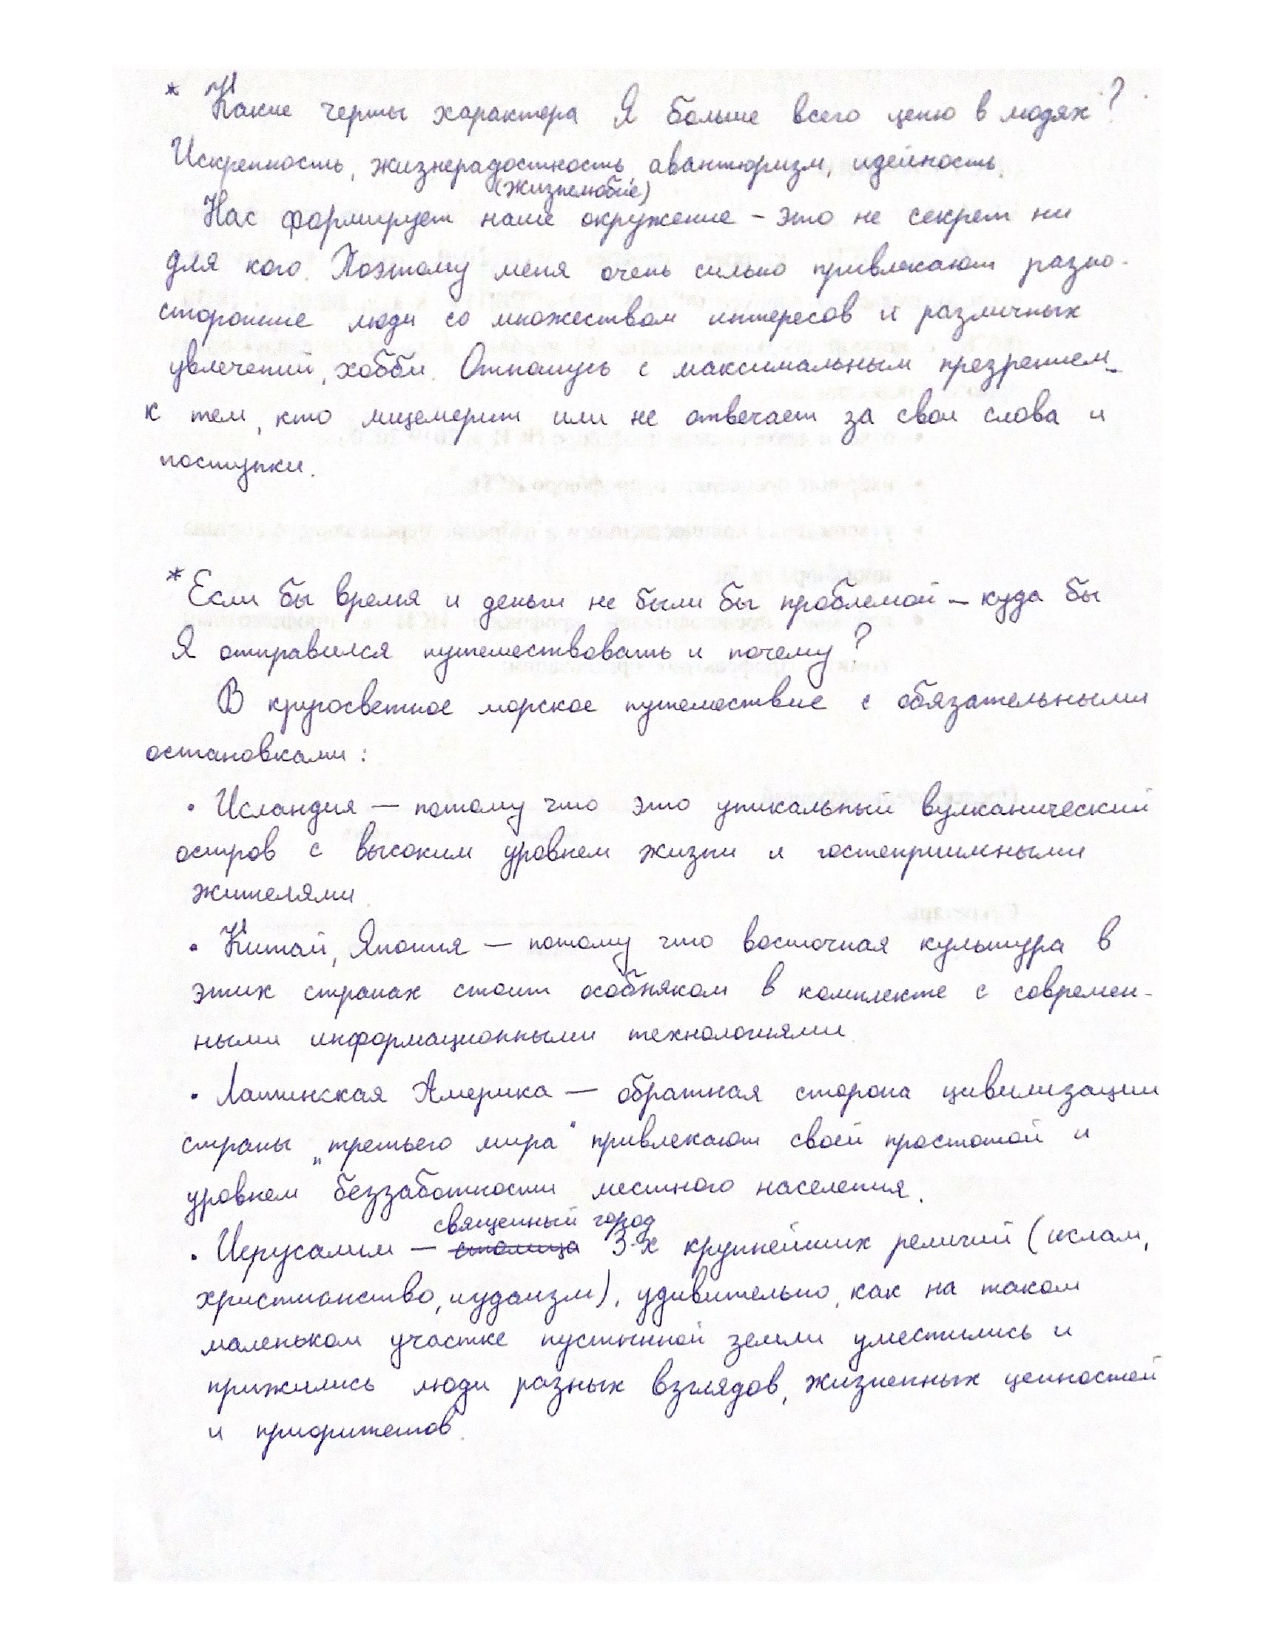 * Какие черты характера Я больше всего ценю в людях?
Искренность, жизнерадостность, авантюризм, идейность.
(жизнелюбие)
Нас формирует наше окружение - это не секрет ни
для кого. Поэтому меня очень сильно привлекают разно-
сторонние люди со множеством интересов и различных
увлечений, хобби. Отношусь с максимальным презрением
к тем, кто лицемерит или не отвечает за свои слова и
поступки.
* Если бы время и деньги не были бы проблемой - куда бы
Я отправился путешествовать и почему?
В кругосветное морское путешествие с обязательными
остановками:
• Исландия — потому что это уникальный вулканический
остров с высоким уровнем жизни и гостеприимными
жителями.
• Китай, Япония — потому что восточная культура в
этих странах стоит особняком в комплекте с современ-
ными информационными технологиями.
• Латинская Америка — обратная сторона цивилизации
страны „третьего мира“ привлекают своей простотой и
уровнем беззаботности местного населения.
священный город
• Иерусалим — столица 3-х крупнейших религий (ислам,
христианство, иудаизм), удивительно, как на таком
маленьком участке пустынной земли уместились и
прижились люди разных взглядов, жизненных ценностей
и приоритетов.